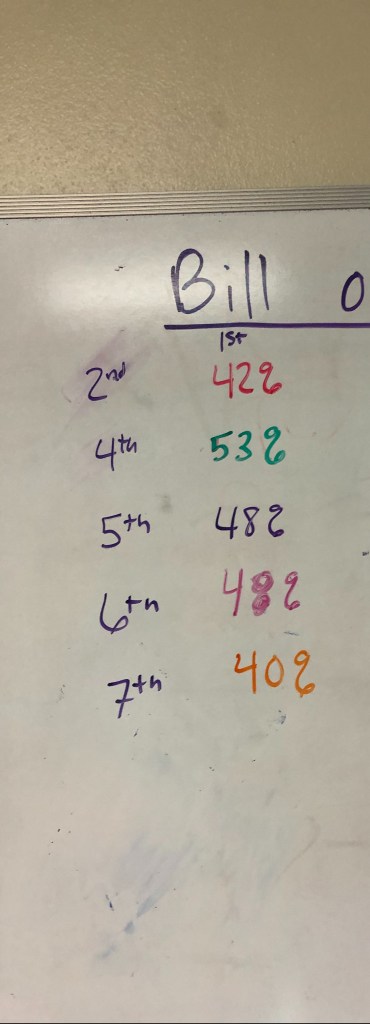 Bill o
1st
2nd 42%
4th 53%
5th 48%
6th 48%
7th 40%